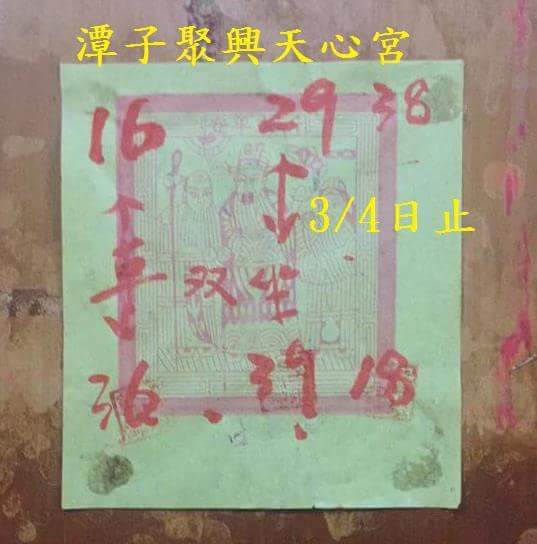 潭子聚興天心宮
16 29 38
3/4日止
喜 双坐
18